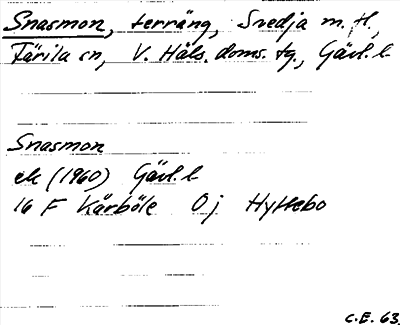 Snasmon, terräng, Svedja m.fl.,
Färila sn, V. Häls. doms. tg., Gävl. l.
Snasmon
ek (1960) Gävl. l.
16 F Kårböle Öj Hyttebo
C.E. 63.